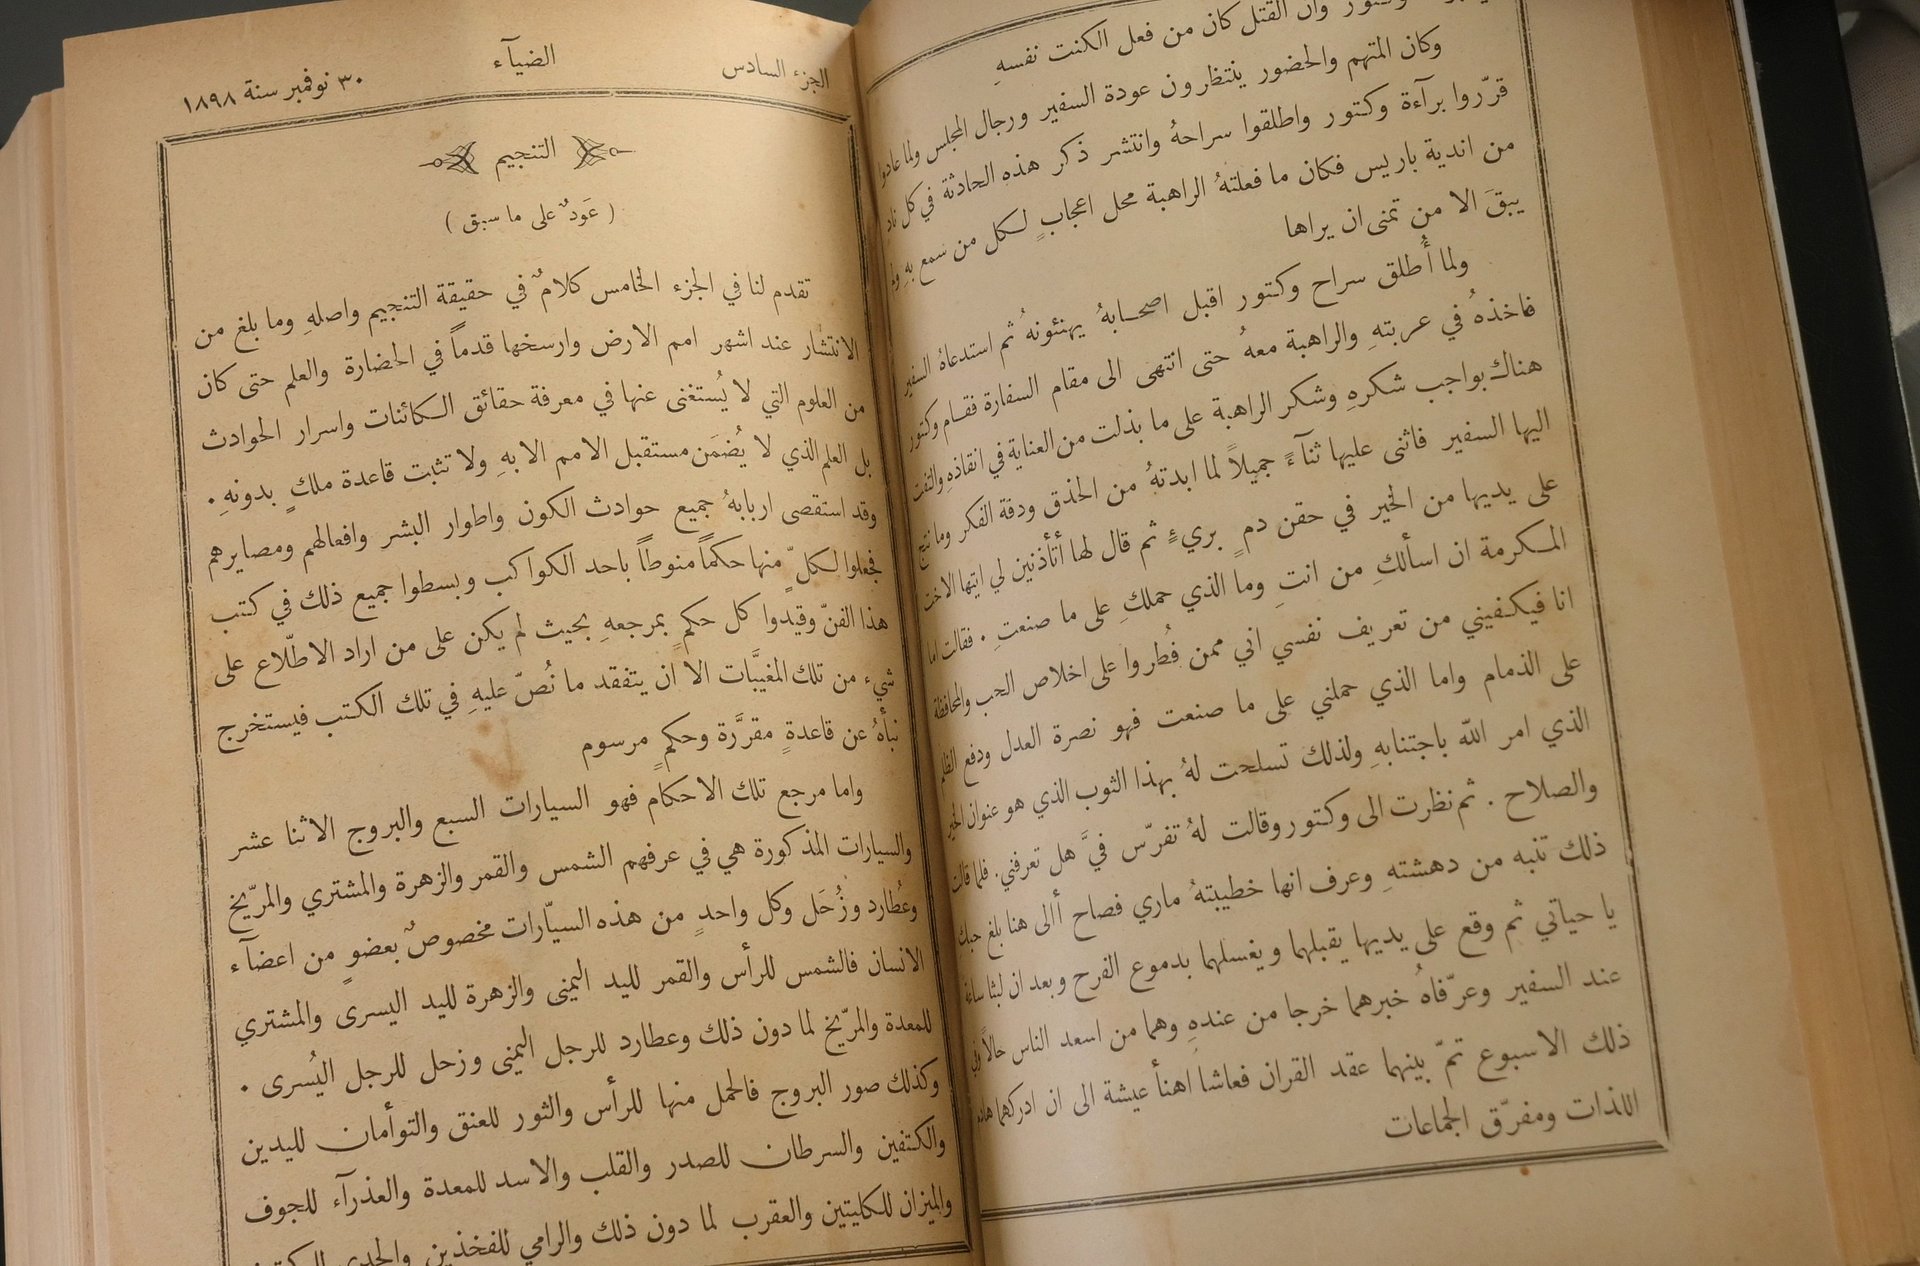 وكتور وان القتل كان من فعل الكنت نفسهِ
وكان المتهم والحضور ينتظرون عودة السفير ورجال المجلس ولما عادوا
قرّروا برآءة وكتور واطلقوا سراحهُ وانتشر ذكر هذه الحادثة في كل ناد
من اندية باريس فكان ما فعلتهُ الراهبة محل اعجابٍ لكل من سمع بهِ ولم
يبقَ الا من تمنى ان يراها
ولما أُطلق سراح وكتور اقبل اصحابهُ يهنئونهُ ثم استدعاهُ السفير
فاخذهُ في عربتهِ والراهبة معهُ حتى انتهى الى مقام السفارة فقام وكتور
هناك بواجب شكرهِ وشكر الراهبة على ما بذلت من العناية في انقاذهِ والتفت
اليها السفير فاثنى عليها ثنآءً جميلاً لما ابدتهُ من الحذق ودقة الفكر وما نتج
على يديها من الخير في حقن دمٍ بريءٍ ثم قال لها أتأذنين لي ايتها الاخت
المكرمة ان اسألكِ من انتِ وما الذي حملكِ على ما صنعتِ . فقالت اما
انا فيكفيني من تعريف نفسي اني ممن فُطروا على اخلاص الحب والمحافظة
على الذمام واما الذي حملني على ما صنعت فهو نصرة العدل ودفع الظلم
الذي امر الله باجتنابهِ ولذلك تسلحت لهُ بهذا الثوب الذي هو عنوان الخير
والصلاح . ثم نظرت الى وكتور وقالت لهُ تفرّس فيَّ هل تعرفني . فلما قالت
ذلك تنبه من دهشتهِ وعرف انها خطيبتهُ ماري فصاح أالى هنا بلغ حبكِ
يا حياتي ثم وقع على يديها يقبلهما ويغسلهما بدموع الفرح وبعد ان لبثا ساعة
عند السفير وعرّفاهُ خبرهما خرجا من عندهِ وهما من اسعد الناس حالاً وفي
ذلك الاسبوع تمّ بينهما عقد القران فعاشا اهنأ عيشة الى ان ادركهما هادم
اللذات ومفرّق الجماعات
الجزء السادس الضيآء ٣٠ نوفمبر سنة ١٨٩٨
التنجيم
( عَودٌ على ما سبق )
تقدم لنا في الجزء الخامس كلامٌ في حقيقة التنجيم واصلهِ وما بلغ من
الانتشار عند اشهر امم الارض وارسخها قدماً في الحضارة والعلم حتى كان
من العلوم التي لا يُستغنى عنها في معرفة حقائق الكائنات واسرار الحوادث
بل العلم الذي لا يُضمَن مستقبل الامم الا بهِ ولا تثبت قاعدة ملكٍ بدونهِ .
وقد استقصى اربابهُ جميع حوادث الكون واطوار البشر وافعالهم ومصايرهم
فجعلوا لكلٍّ منها حكماً منوطاً باحد الكواكب وبسطوا جميع ذلك في كتب
هذا الفنّ وقيدوا كل حكمٍ بمرجعهِ بحيث لم يكن على من اراد الاطّلاع على
شيء من تلك المغيَّبات الا ان يتفقد ما نُصّ عليهِ في تلك الكتب فيستخرج
نبأهُ عن قاعدةٍ مقرَّرة وحكمٍ مرسوم
واما مرجع تلك الاحكام فهو السيارات السبع والبروج الاثنا عشر
والسيارات المذكورة هي في عرفهم الشمس والقمر والزهرة والمشتري والمرّيخ
وعُطارد وزُحَل وكل واحدٍ من هذه السيّارات مخصوصٌ بعضوٍ من اعضآء
الانسان فالشمس للرأس والقمر لليد اليمنى والزهرة لليد اليسرى والمشتري
للمعدة والمرّيخ لما دون ذلك وعطارد للرجل اليمنى وزحل للرجل اليُسرى .
وكذلك صور البروج فالحمل منها للرأس والثور للعنق والتوأمان لليدين
والكتفين والسرطان للصدر والقلب والاسد للمعدة والعذرآء للجوف
والميزان للكليتين والعقرب لما دون ذلك والرامي للفخذين والجدي